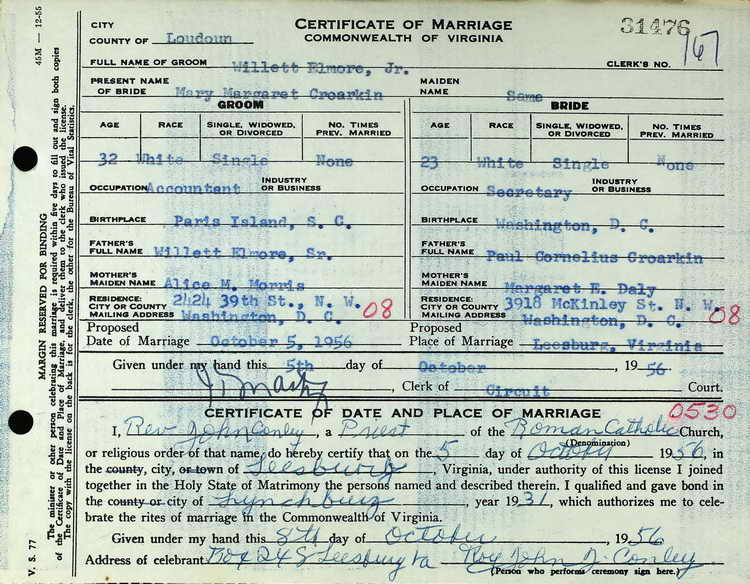 CITY
COUNTY OF Loudoun
CERTIFICATE OF MARRIAGE
COMMONWEALTH OF VIRGINIA
31476
FULL NAME OF GROOM Willett Elmore, Jr.
CLERK'S NO. 167
PRESENT NAME OF BRIDE Mary Margaret Croarkin
MAIDEN NAME Same
GROOM
BRIDE
AGE RACE SINGLE, WIDOWED, OR DIVORCED NO. TIMES PREV. MARRIED
AGE RACE SINGLE, WIDOWED, OR DIVORCED NO. TIMES PREV. MARRIED
32 White Single None
23 White Single None
OCCUPATION Accountant INDUSTRY OR BUSINESS
OCCUPATION Secretary INDUSTRY OR BUSINESS
BIRTHPLACE Paris Island, S. C.
BIRTHPLACE Washington, D. C.
FATHER'S FULL NAME Willett Elmore, Sr.
FATHER'S FULL NAME Paul Cornelius Croarkin
MOTHER'S MAIDEN NAME Alice M. Morris
MOTHER'S MAIDEN NAME Margaret E. Daly
RESIDENCE: CITY OR COUNTY MAILING ADDRESS 2424 39th St., N. W. Washington, D. C. 08
RESIDENCE: CITY OR COUNTY MAILING ADDRESS 3918 McKinley St. N. W. Washington, D. C. 08
Proposed Date of Marriage October 5, 1956
Proposed Place of Marriage Leesburg, Virginia
Given under my hand this 5th day of October, 1956
, Clerk of Circuit Court.
CERTIFICATE OF DATE AND PLACE OF MARRIAGE 0530
I, Rev John Conley, a Priest of the Roman Catholic Church,
(Denomination)
or religious order of that name, do hereby certify that on the 5 day of October 1956, in
the county, city, or town of Leesburg, Virginia, under authority of this license I joined
together in the Holy State of Matrimony the persons named and described therein. I qualified and gave bond in
the county or city of Lynchburg, year 1931, which authorizes me to cele-
brate the rites of marriage in the Commonwealth of Virginia.
Given under my hand this 8th day of October, 1956
Address of celebrant Box 248 Leesburg Va Rev John J. Conley
(Person who performs ceremony sign here.)
45M — 12-55
MARGIN RESERVED FOR BINDING
The minister or other person celebrating this marriage is required within five days to fill out and sign both copies
of the Certificate of Date and Place of Marriage, and deliver them to the clerk who issued the license.
The copy with the license on the back is for the clerk, the other for the Bureau of Vital Statistics.
V. S. 77